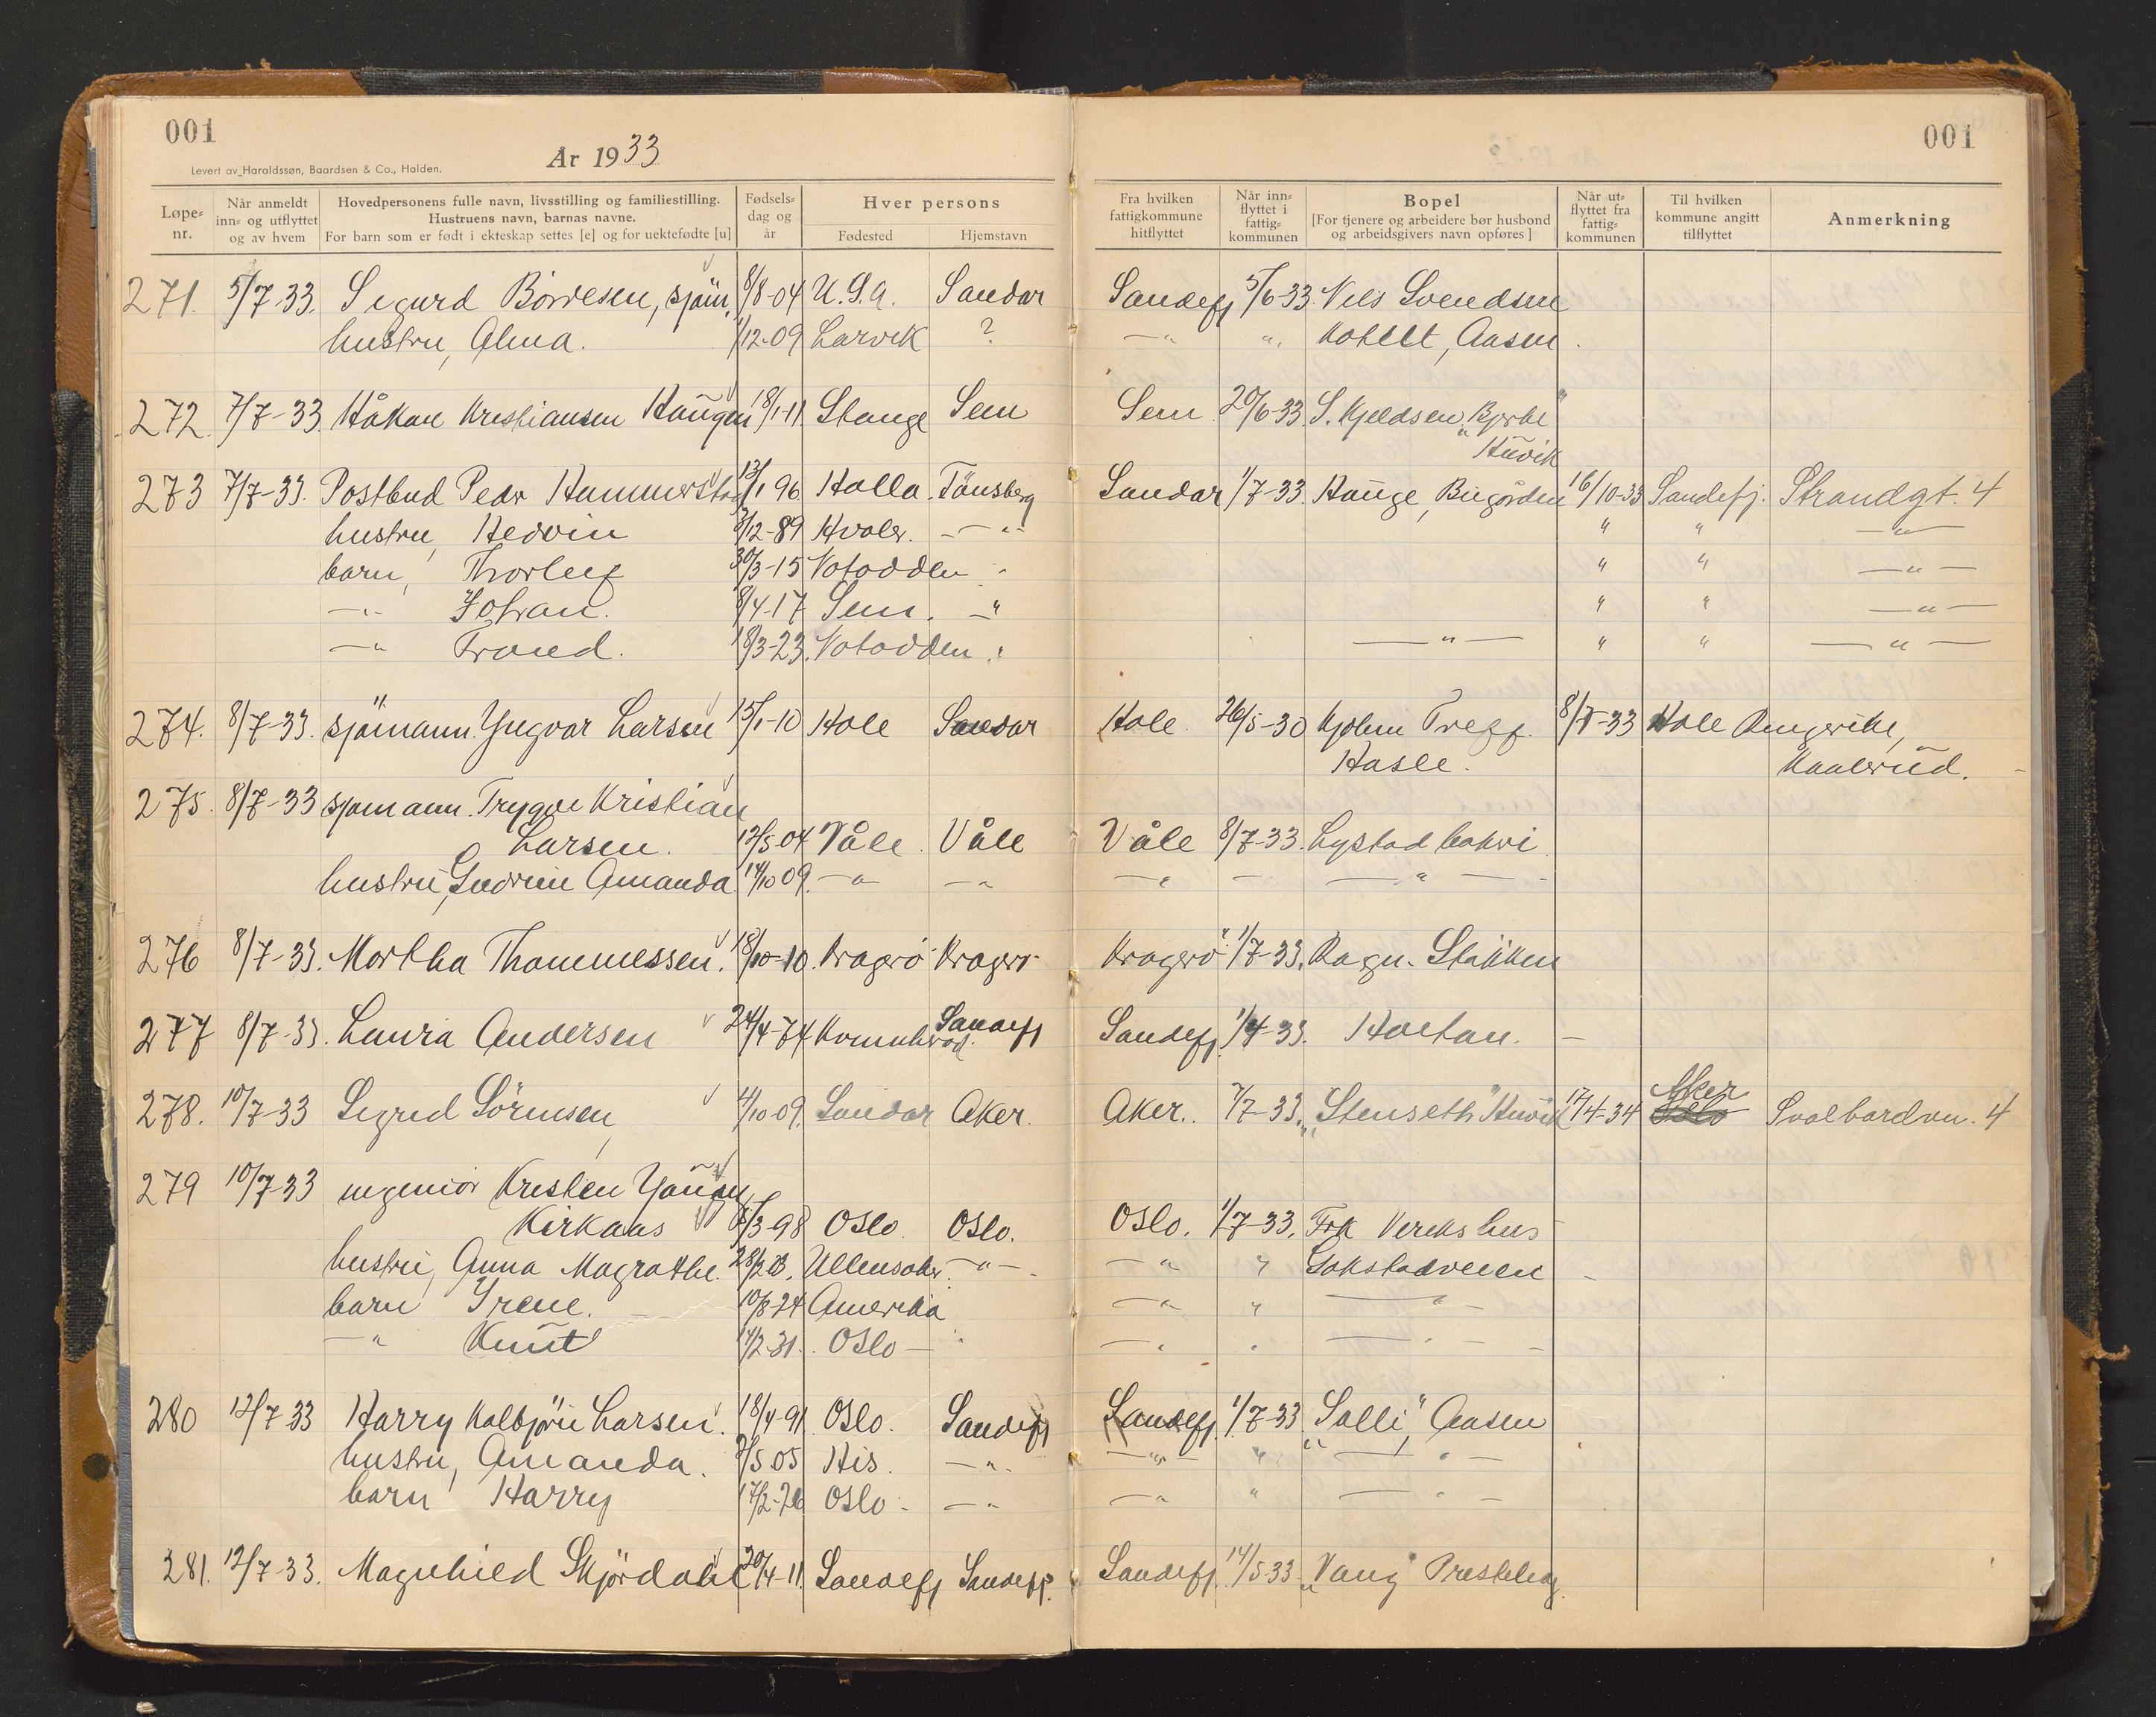 001
År 1933
Levert av Haraldssøn, Baardsen & Co., Halden.
Løpe-nr. Når anmeldt inn- og utflyttet og av hvem Hovedpersonens fulle navn, livsstilling og familiestilling. Hustruens navn, barnas navne. For barn som er født i ekteskap settes [e] og for uektefødte [u] Fødsels-dag og år Hver persons Fødested Hjemstavn
271. 5/7-33. Sigurd Börresen, sjöm. 8/8-04 U.S.A. Sandar
hustru, Alma. 1/12-09 Larvik ?
272. 7/7-33. Håkon Kristiansen Haugen 18/1-11. Stange Sem
273 7/7-33. Postbud Peder Hammerstad 13/1 96 Holla Tönsberg
hustru, Hedvin /12-89 Hvaler. — " -
barn, Thorleif 30/3-15 Notodden "
— " Johan. 8/4-17 Sem. — "
— " Trond. 18/3-23. Notodden "
274. 8/7-33. sjömann. Yngvar Larsen 15/1-10 Hole Sandar
275. 8/7-33 sjömann. Trygve Kristian
Larsen. 12/5-04 Våle Våle
hustru, Gudrun Amanda 14/10 09. — " — "
276 8/7-33. Martha Thommessen. 18/10-10. Kragerö Kragerö
277 8/7-33. Laura Andersen 24/4-74 Sandefj
278. 10/7-33 Sigrid Sörensen 4/10-09. Sandar Aker.
279 10/7-33 ingeniör Kristen
Kirkaas /3-98 Oslo. Oslo.
hustru, Anna Magrathe. 28/2 Ullensaker. — " —
barn Irene. 10/8-24 Amerika
— " Knut 14/2-31. Oslo — "
280 12/7-33 Harry Kolbjörn Larsen. 18/4-91 Oslo. Sandefj
hustru, Amanda. /5 05 His. — " -
barn Harry 17/2-26 Oslo. — "
281. 12/7-33. Magnhild Skjördahl 20/4-11. Sandefj Sandefj.
001
Fra hvilken fattigkommune hitflyttet Når inn-flyttet i fattig-kommunen Bopel [For tjenere og arbeidere bør husbond og arbeidsgivers navn opføres] Når ut-flyttet fra fattig-kommunen Til hvilken kommune angitt tilflyttet Anmerkning
Sandefj 5/6-33. Nils Svendsen
— " ". Aasen.
Sem 20/6-33. S. Kjeldsen, "Bjerke"
Huvik
Sandar 1/7-33. Hauge, Bugården 16/10-33 Sandefj. Strandgt. 4
" " — " —
" " — " —
" " — " —
— " — " " — " —
Hole 26/5-30 Hjelm 8/7-33 Hole Ringerike,
Hasle. Kaalerud.
Våle 8/7-33. Lystad
— " — — " —
Kragerö 1/7-33. Ragn. Stokken
Sandefj. 1/4-33. Hoetan. —
Aker.. 7/7-33. "Stenseth" Huvik 17/4-34 Aker Svalbardvn. 4
Oslo. 1/7-33. Frk
— " " Gokstadveien
— " " — " —
— " " — " —
Sandefj. 1/7-33 "Solli," Aasen
— " — " — " —
— " " — " —
Sandefj. 14/5-33 "Vang"